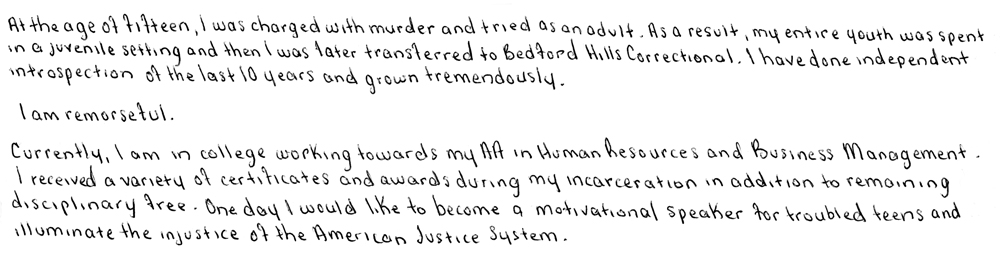 At the age of fifteen, I was charged with murder and tried as an adult. As a result, my entire youth was spent
in a juvenile setting and then I was later transferred to Bedford Hills Correctional. I have done independent
introspection of the last 10 years and grown tremendously.
I am remorseful.
Currently, I am in college working towards my AA in Human Resources and Business Management.
I received a variety of certificates and awards during my incarceration in addition to remaining
disciplinary free. One day I would like to become a motivational speaker for troubled teens and
illuminate the injustice of the American Justice System.